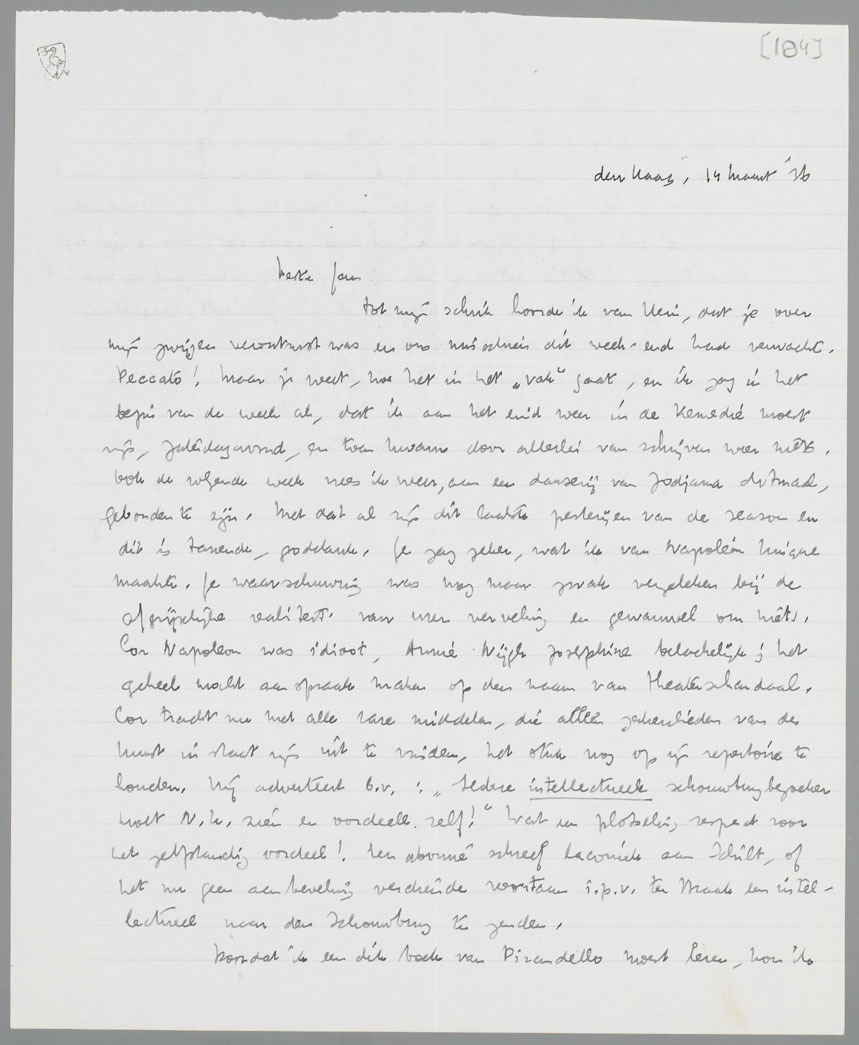 [184]
den Haag, 14 Maart '36
Beste Jan
Tot mijn schrik hoorde ik van Heni, dat je over
mijn zwijgen verontrust was en ons misschien dit week-end had verwacht.
Peccato! Maar je weet, hoe het in het „vak” gaat, en ik zag in het
begin van de week al, dat ik aan het eind weer in de Komedie moest
zijn, Zaterdagavond, en toen kwam door allerlei van schrijven weer niets.
Ook de volgende week vrees ik weer, aan een danserij van Jodjana ditmaal,
gebonden te zijn. Met dat al zijn dit laatste pesterijen van de season en
dit is tanende, goddank. Je zag zeker, wat ik van Napoleon Unique
maakte. Je waarschuwing was nog maar zwak vergeleken bij de
afgrijselijke realiteit van uren verveling en gewauwel om niets.
Cor Napoleon was idioot, Annie v. Wijgh Josephine belachelijk; het
geheel mocht aanspraak maken op den naam van theaterschandaal.
Cor tracht nu met alle rare middelen, die alleen zakenlieden van de
kunst in staat zijn uit te vinden, het stuk nog op zijn repertoire te
houden. Hij adverteert b.v.: „Iedere intellectueele schouwburgbezoeker
moet N.U. zien en oordeele zelf!” Wat een plotseling respect voor
het zelfstandig oordeel! Een abonné schreef laconiek aan Schilt, of
het nu geen aanbeveling verdiende voortaan i.p.v. ter Braak een intel-
lectueel naar den Schouwburg te zenden.
Doordat ik een dik boek van Pirandello moest lezen, kon ik